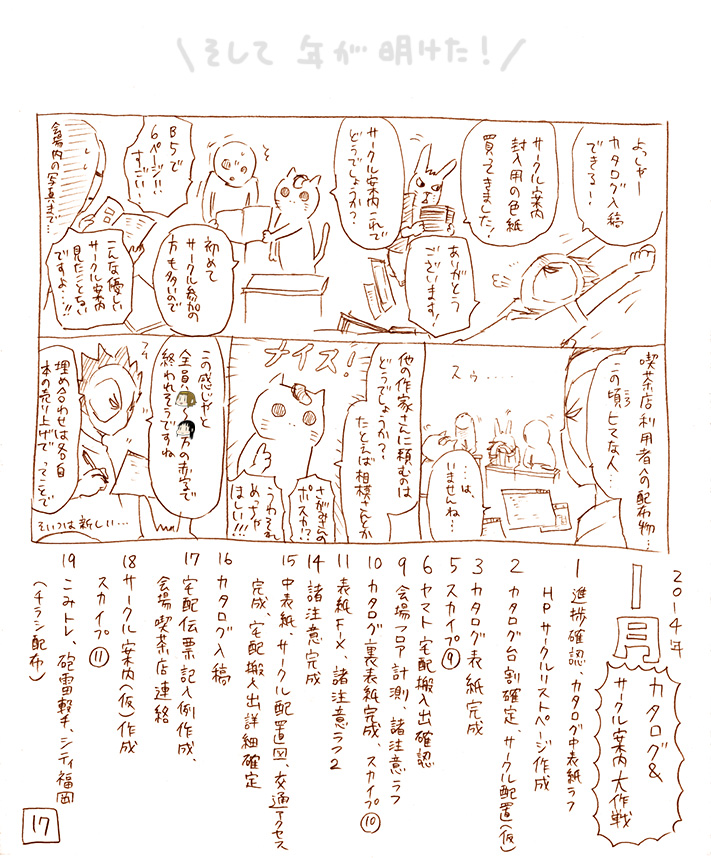 そして 年が 明けた!
よっしゃー
カタログ入稿
できる!
サークル案内
封入用の色紙
買ってきました!
ありがとう
ございます!
サークル案内これで
どうでしょうか?
初めて
サークル参加の
方も多いので
B5で
6ページ!!
すごい!
こんな優しい
サークル案内
見たことない
ですよ…!!
会場内の写真まで…
喫茶店利用者への配布物…
この頃ヒマな人…
スゥ……
…は、
いませんね…
他の作家さんに頼むのは
どうでしょうか?
たとえば相模さんとか
ナイス!
さがみさんの
ポスカ!?
うわそれ
めっちゃ
ほしい!!!
この感じやと
全員
〜
万の赤字で
終われそうですね
埋め合わせは各自
本の売り上げで ってことで
そいつは新しい…
2014年
1月
カタログ&
サークル案内大作戦
1 進捗確認、カタログ中表紙ラフ
HPサークルリストページ作成
2 カタログ台割確定、サークル配置(仮)
3 カタログ表紙完成
5 スカイプ⑨
6 ヤマト宅配搬入出確認
9 会場フロア計測、諸注意ラフ
10 カタログ裏表紙完成、スカイプ⑩
11 表紙FIX、諸注意ラフ2
14 諸注意完成
15 中表紙、サークル配置図、交通アクセス
完成、宅配搬入出詳細確定
16 カタログ入稿
17 宅配伝票記入例作成、
会場喫茶店連絡
18 サークル案内(仮)作成
スカイプ⑪
19 こみトレ、砲雷撃チ、シティ福岡
(チラシ配布)
17